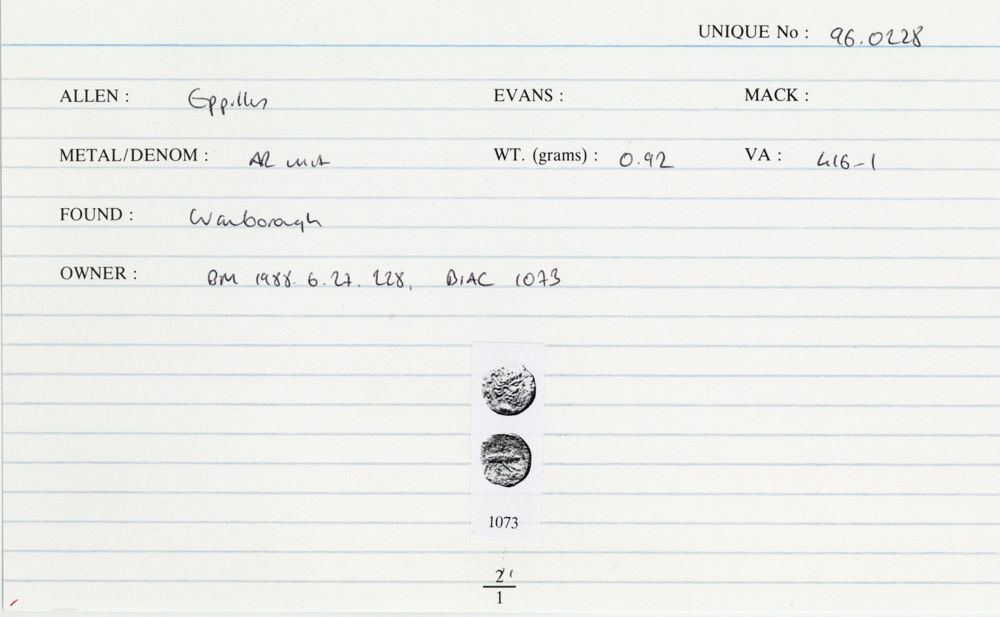 UNIQUE No : 96.0228
ALLEN : Eppillus EVANS : MACK :
METAL/DENOM : AR unit WT. (grams) : 0.92 VA : 416-1
FOUND : Wanborough
OWNER : BM 1988. 6. 27. 228, BIAC 1073
1073
1